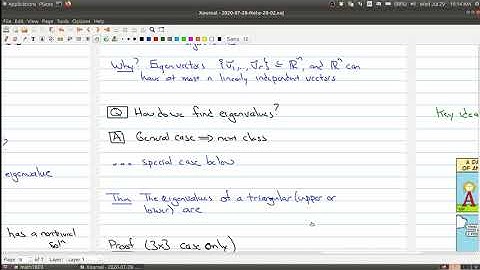 Applications Places
Wed Jul 29
Xournal - 2020-07-28-Note-20-02.xoj
File Edit View Journal Tools Options Help
Why? Eigenvectors {v⃗₁,...,v⃗ᵣ} ⊆ ℝⁿ, and ℝⁿ can
have at most n linearly independent vectors
Q How do we find eigenvalues?
Key idea
A General case ⟹ next class
... special case below
eigenvalue
Thm The eigenvalues of a triangular (upper or
lower) are
has a nontrivial
sol'n
Proof (3x3 case only)
A DA
OF AN
A
Page
Layer Layer 1
math1B03
Xournal - 2020-07-28